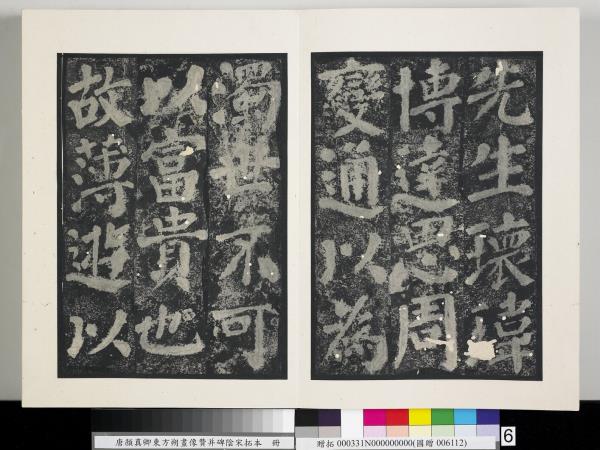 先生瓌瑋
博達思周
變通以為
濁世不可
以富貴也
故薄遊以
唐顏真卿東方朔畫像贊并碑陰宋拓本 冊
贈拓 000331N000000000(國贈 006112)
6